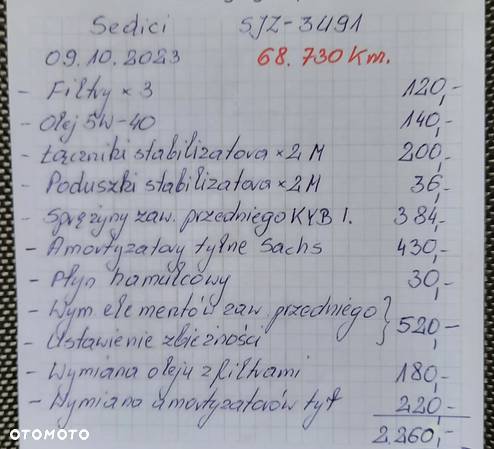 Sedici SJZ-3491
09.10.2023 68.730 Km.
- Filtry x 3 120,-
- Olej 5W-40 140,-
- Łączniki stabilizatora x 2 M 200,-
- Poduszki stabilizatora x 2 M 36,-
- Sprężyny zaw. przedniego KYB I. 384,-
- Amortyzatory tylne Sachs 430,-
- Płyn hamulcowy 30,-
- Wym. elementów zaw. przedniego
- Ustawienie zbieżności } 520,-
- Wymiana oleju z filtrami 180,-
- Wymiana amortyzatorów tył 220,-
2.260,-
OTOMOTO